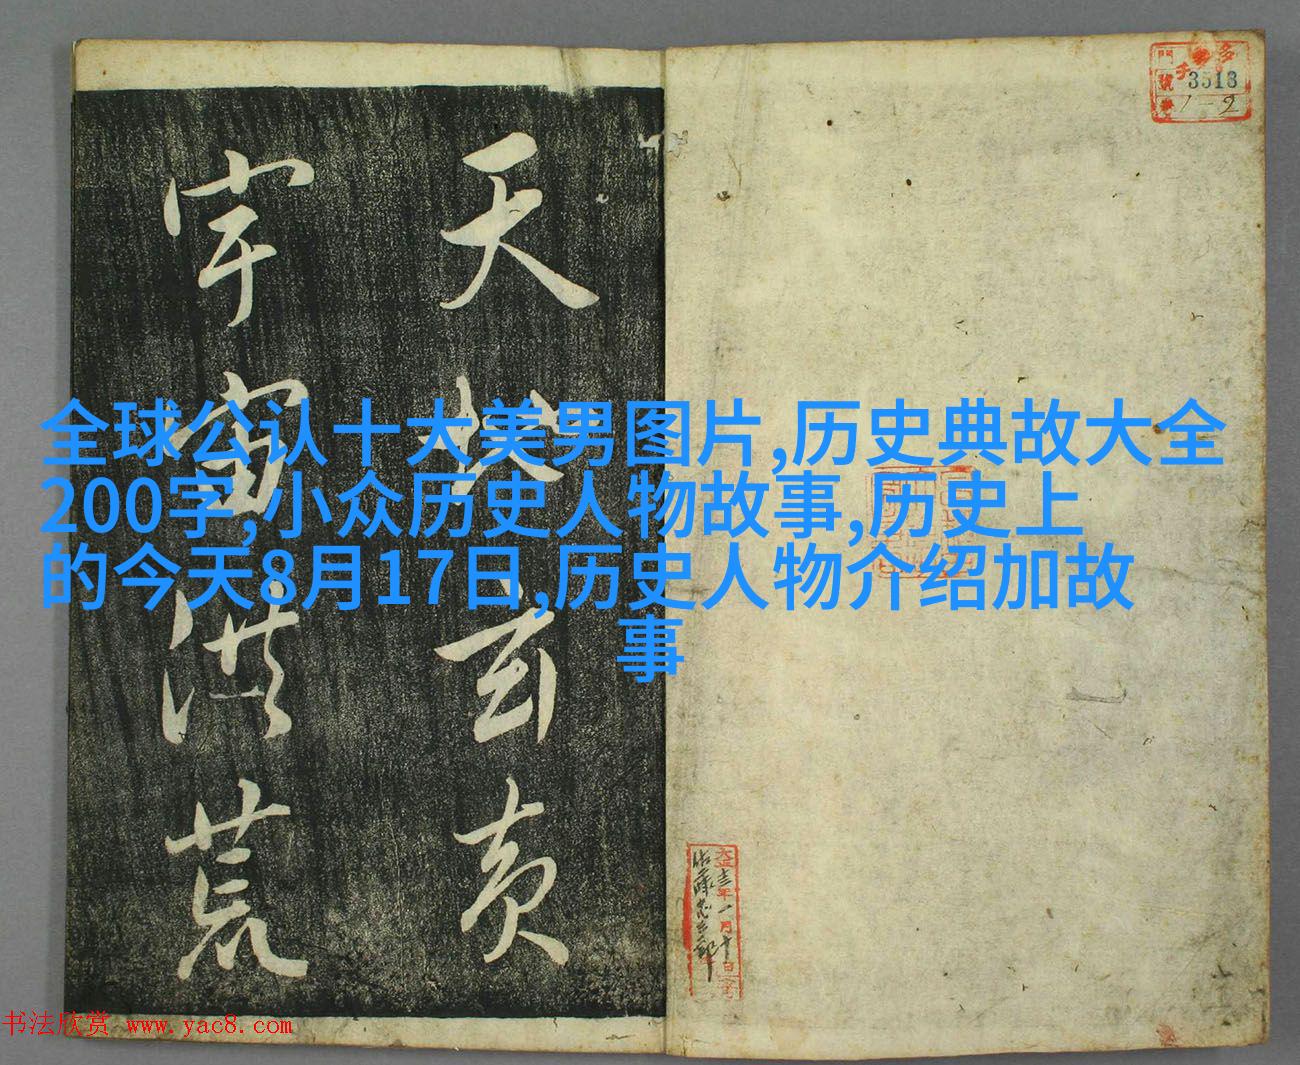 全球公认十大美男图片,历史典故大全
200字,小众历史人物故事,历史上
的今天8月17日,历史人物介绍加故
事
天地玄黄
宇宙洪荒
3513
1-2
大正十三年一月十日
书法欣赏 www.yac8.com